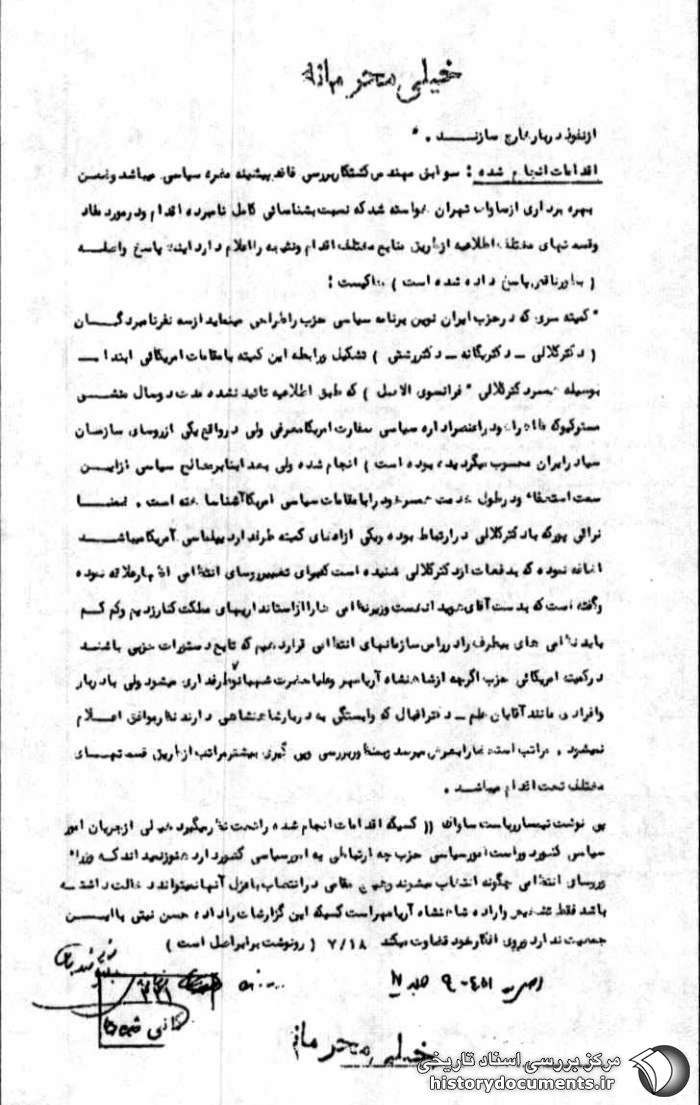 خیلی محرمانه
از نفوذ دربار خارج سازند .
اقدامات انجام شده : سوابق مهندس کشتکار بررسی فاقد پیشینه مضره سیاسی میباشد وضمن
بهره برداری از ساواک تهران خواسته شد که نسبت بشناسائی کامل نامبرده اقدام ودر مورد مفاد
وقسمتهای مختلف اطلاعیه ازطریق منابع مختلف اقدام ونتیجه را اعلام دارد اینک پاسخ واصله
( بطور ناقص پاسخ داده شده است ) حاکیست :
" کمیته سری که در حزب ایران نوین برنامه سیاسی حزب را طراحی مینماید از سه نفر نامبردگان
( دکتر کلالی ــ دکتر یگانه ــ دکتر رشتی ) تشکیل ورابطه این کمیته با مقامات امریکائی ابتدا ــ
بوسیله همسر دکتر کلالی " فرانسوی الاصل ( که طبق اطلاعیه تائید نشده مدت دو سال منشی
مستر کیو که ظاهرا خود را عنصر اداره سیاسی سفارت امریکا معرفی ولی در واقع یکی از روسای سازمان
سیا در ایران محسوب میگردیده، بوده است ) انجام شده ولی بعد ا بنا بر مصالح سیاسی از این
سمت استعفاء ودر طول خدمت همسر خود را با مقامات سیاسی امریکا آشنا ساخته است . ضمنا
نراقی پور که با دکتر کلالی در ارتباط بوده ویکی از اعضای کمیته طرفدار دیپلماسی آمریکا میباشد
اضافه نموده که بدفعات از دکتر کلالی شنیده است که برای تغییر روسای انتظامی اظهار علاقه نموده
وگفته است که بدست آقای هویدا نخست وزیر نظامی ها را از استانداریهای مملکت کنار زدیم وکم کم
باید نظامی های بیطرف را در راس سازمانهای انتظامی قرار دهیم که تابع دستورات حزبی باشند
در کمیته امریکائی حزب اگرچه از شاهنشاه آریامهر وعلیاحضرت شهبانو طرفداری میشود ولی با دربار
وافرادی مانند آقایان علم ــ دکتر اقبال که وابستگی به دربار شاهنشاهی دارند نظر موافق اعلام
نمیشود . مراتب استحضارا بعرض میرسد وبررسی وپی گیری بیشتر مراتب ازطریق قسمتهای
مختلف تحت اقدام میباشد .
پی نوشت تیمسار ریاست ساواک (( کسیکه اقدامات انجام شده را تحت نظر میگیرد خیلی از جریان امور
سیاسی کشور دور است امور سیاسی حزب چه ارتباطی به امور سیاسی کشور دارد هنوز نمیداند که وزراء
وروسای انتظامی چگونه انتخاب میشوند وهیچ مقامی در انتصاب یا عزل آنها نمیتواند دخالت داشته
باشد فقط تشخیص واراده شاهنشاه آریامهر است کسیکه این گزارشات را داده حسن نیتی با این
جمعیت ندارد وروی افکار خود قضاوت میکند ۷/۱۸ ( رونوشت برابر اصل است )
خیلی محرمانه
مرکز بررسی اسناد تاریخی
historydocuments.ir